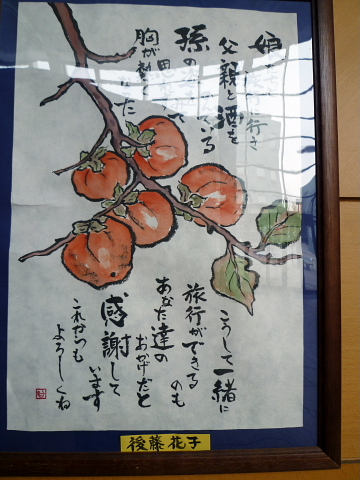 娘
行き
父親と酒を
孫の
いる
胸が熱く
した
こうして一緒に
旅行ができる
のも
あなた達の
おかげだと
感謝して
います
これからも
よろしくね
後藤花子